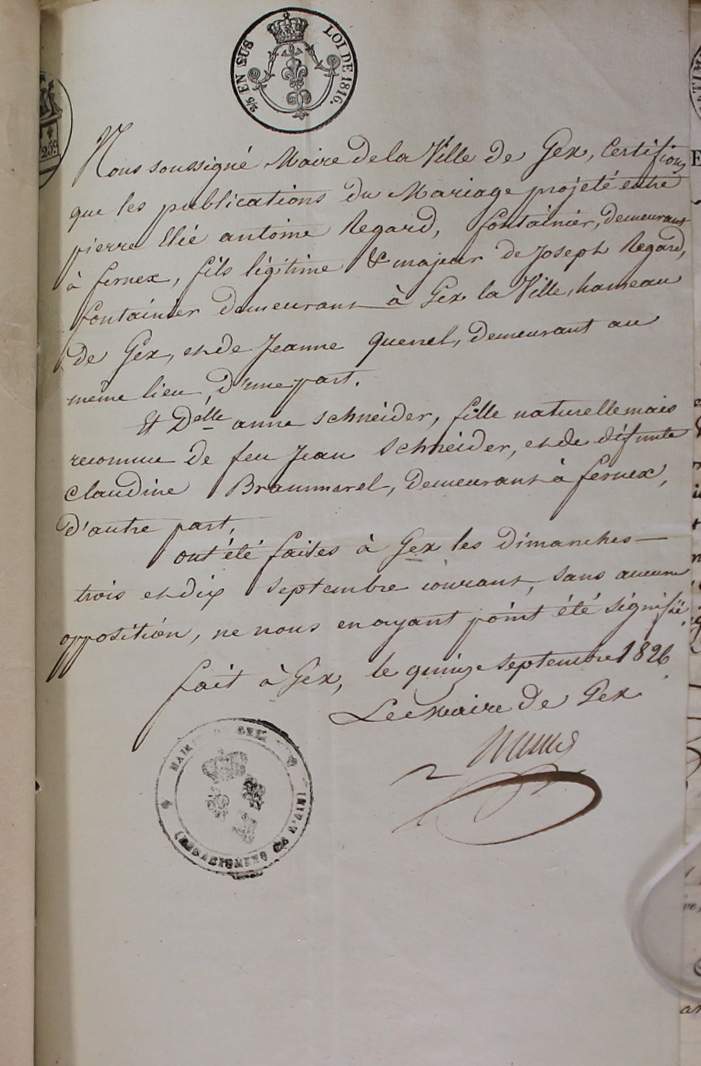 25 EN SUS LOI DE 1816.
Nous soussigné Maire de la Ville de Gex, Certifions
que les publications du Mariage projeté entre
pierre Elié antoine Regard, fontainier, demeurant
à fernex, fils légitime & majeur de Joseph Regard,
fontainier demeurant à Gex la Ville, hameau
de Gex, et de Jeanne quenel, demeurant au
même lieu, d'une part.
Et Delle anne Schneider, fille naturelle mais
reconnue de feu Jean Schneider, et de défunte
Claudine Brammerel, demeurant à fernex,
d'autre part,
ont été faites à Gex les dimanches
trois et dix Septembre courant, sans aucune
opposition, ne nous en ayant point été signifié.
fait à Gex, le quinze Septembre 1826
Le Maire de Gex
MAIRIE DE GEX
(DEPARTEMENT DE L'AIN)